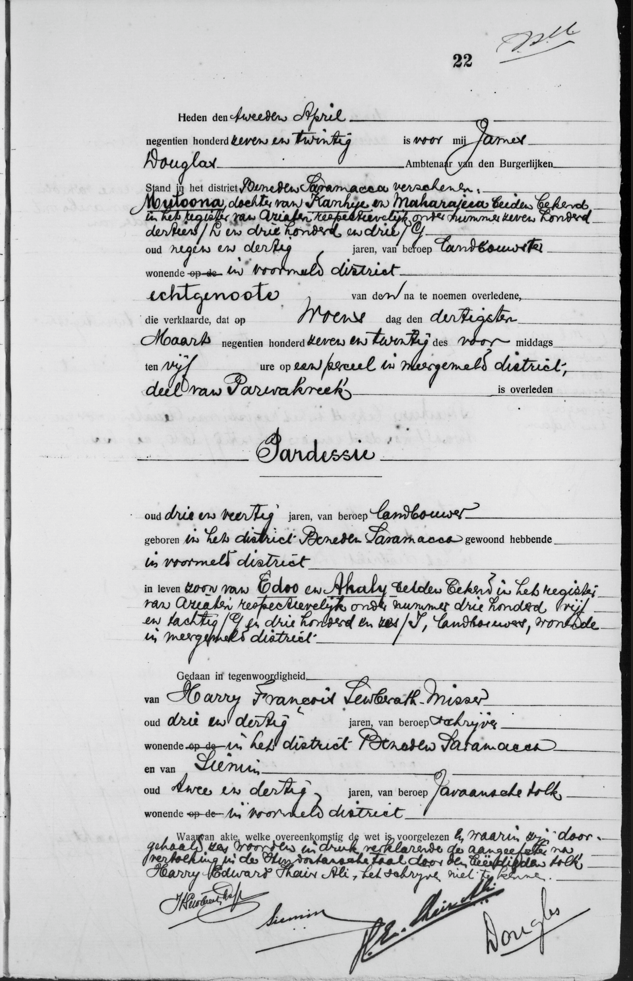 22
Heden den tweeden April
negentien honderd zeven en twintig is voor mij James
Douglas Ambtenaar van den Burgerlijken
Stand in het district Beneden Saramacca verschenen,
Mytoona, dochter van Kanhye en Maharajiea beiden bekend
in het register van Aziaten respectievelijk onder nummer zeven honderd
dertien/L en drie honderd en drie/G
oud negen en dertig jaren, van beroep landbouwster
wonende op de in voormeld district
echtgenoote van den na te noemen overledene,
die verklaarde, dat op Woensdag den dertigsten
Maart negentien honderd zeven en twintig des voormiddags
ten vijf ure op een perceel in meergemeld district,
deel van Parwakreek is overleden
Pardessie
oud drie en veertig jaren, van beroep landbouwer
geboren in het district Beneden Saramacca gewoond hebbende
in voormeld district
in leven zoon van Edoo en Akaly beiden bekend in het register
van Aziaten respectievelijk onder nummer drie honderd vijf
en tachtig/G en drie honderd en zes/I, landbouwers, wonende
in meergemeld district
Gedaan in tegenwoordigheid
van Harry François Sewberath-Misser
oud drie en dertig jaren, van beroep schrijver
wonende op de in het district Beneden Saramacca
en van Siemin
oud twee en dertig, jaren, van beroep Javaansche tolk
wonende op de in voormeld district
Waarvan akte, welke overeenkomstig de wet is voorgelezen en waarin zijn door-
gehaald zes woorden in druk, verklarende de aangeefster na
vertolking in de Hindostansche taal door den beëedigden tolk
Harry Edward Thair Ali, het schrijven niet te kennen.
Siemin
Douglas